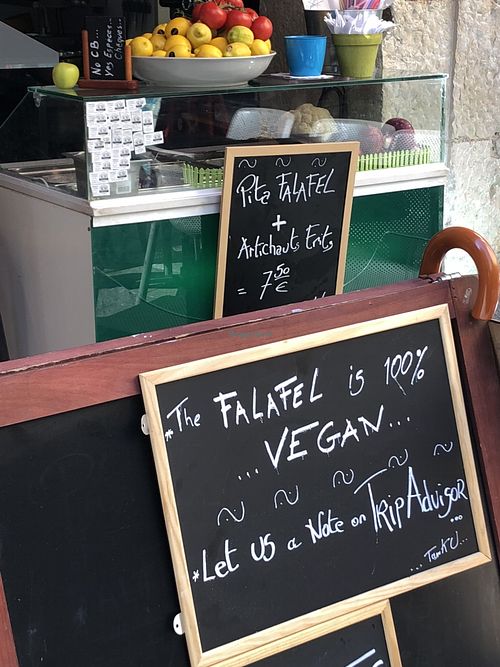 No CB...
Yes Espèces...
Chèques...
Pite FALAFEL
+
Artichauts Frits
= 7,50 €
*The FALAFEL is 100%
...VEGAN...
*Let us a Note on TripAdvisor
...
...TankU...